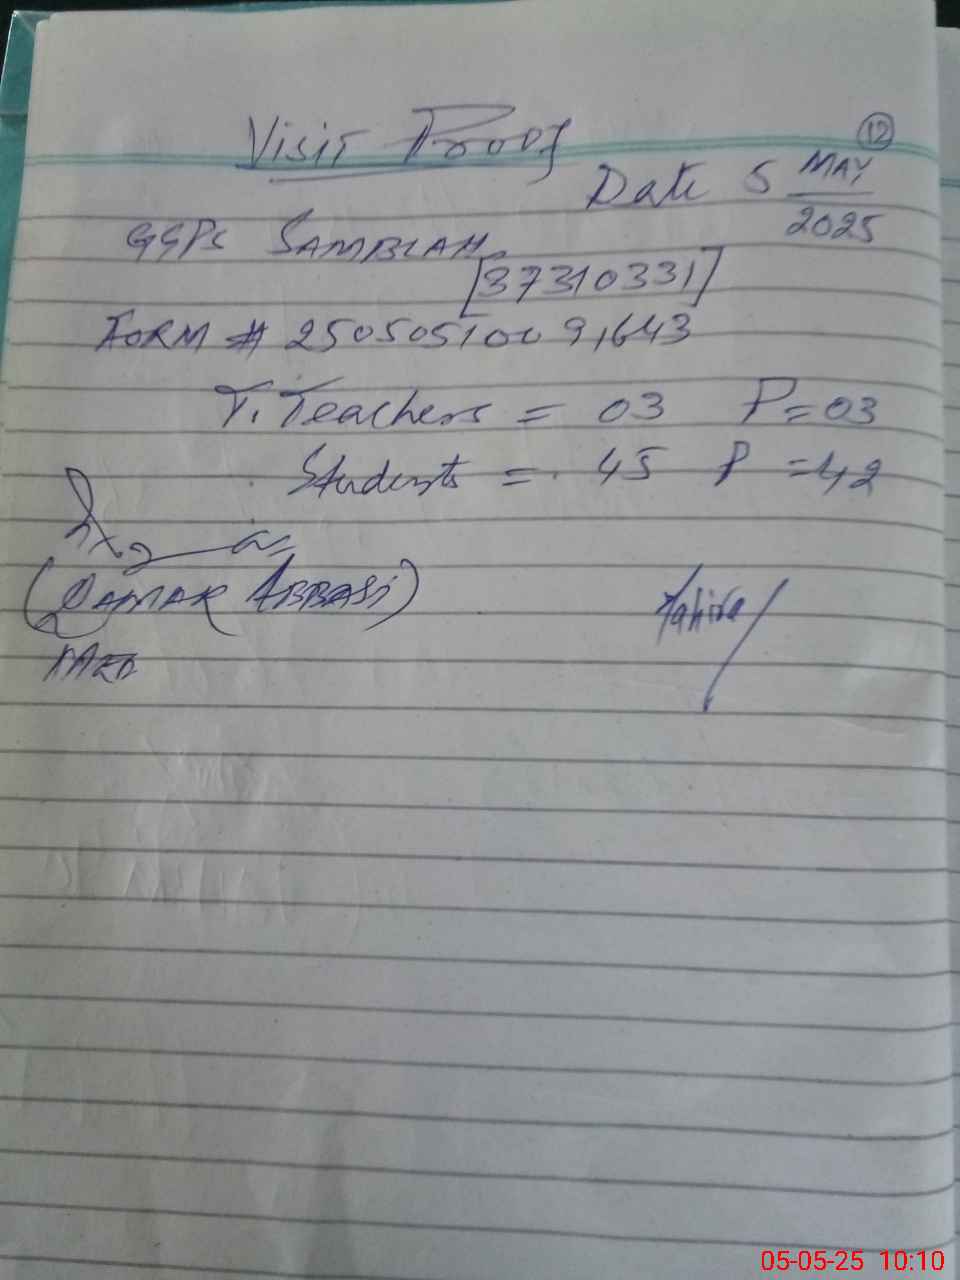 12
Visit Proof
Date 5 MAY
2025
GGPS SAMBLAH
[37310331]
FORM # 25050510091643
T. Teachers = 03 P = 03
Students = 45 P = 42
(QAMAR ABBASI)
Tahira
05-05-25 10:10